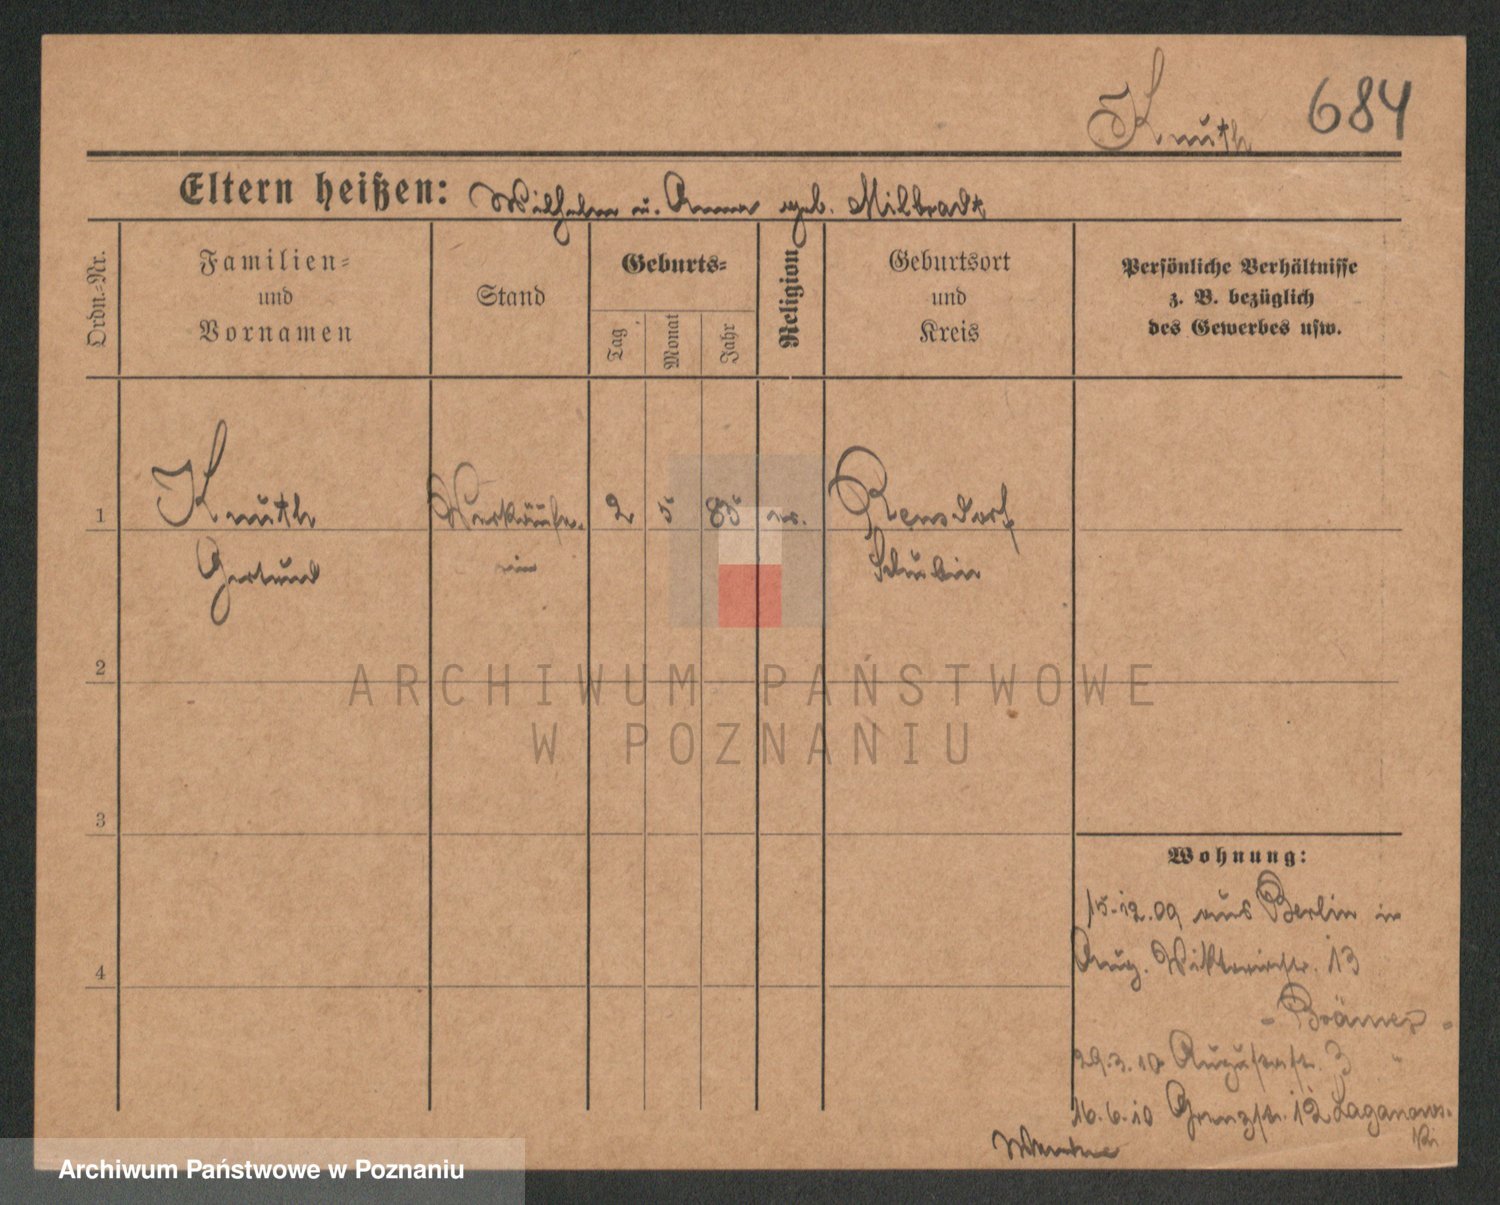 Knuth 684
Eltern heißen: Wilhelm u. Anna geb. Milbradt
Ordn.-Nr.
Familien-
und
Vornamen
Stand
Geburts-
Tag
Monat
Jahr
Religion
Geburtsort
und
Kreis
Persönliche Verhältnisse
z. B. bezüglich
des Gewerbes usw.
1 Knuth Verkäufe- 2 5 85 ev. Rensdorf
Gertrud rin Schubin
2
3
4
Wohnung:
15.12.09 aus Berlin in
Aug. Viktoriastr. 13
- Brämer -
29.3.10 Augustastr. 3 "
16.6.10 Grenzstr. 12 Laganows-
ki
ARCHIWUM PAŃSTWOWE
W POZNANIU
Archiwum Państwowe w Poznaniu